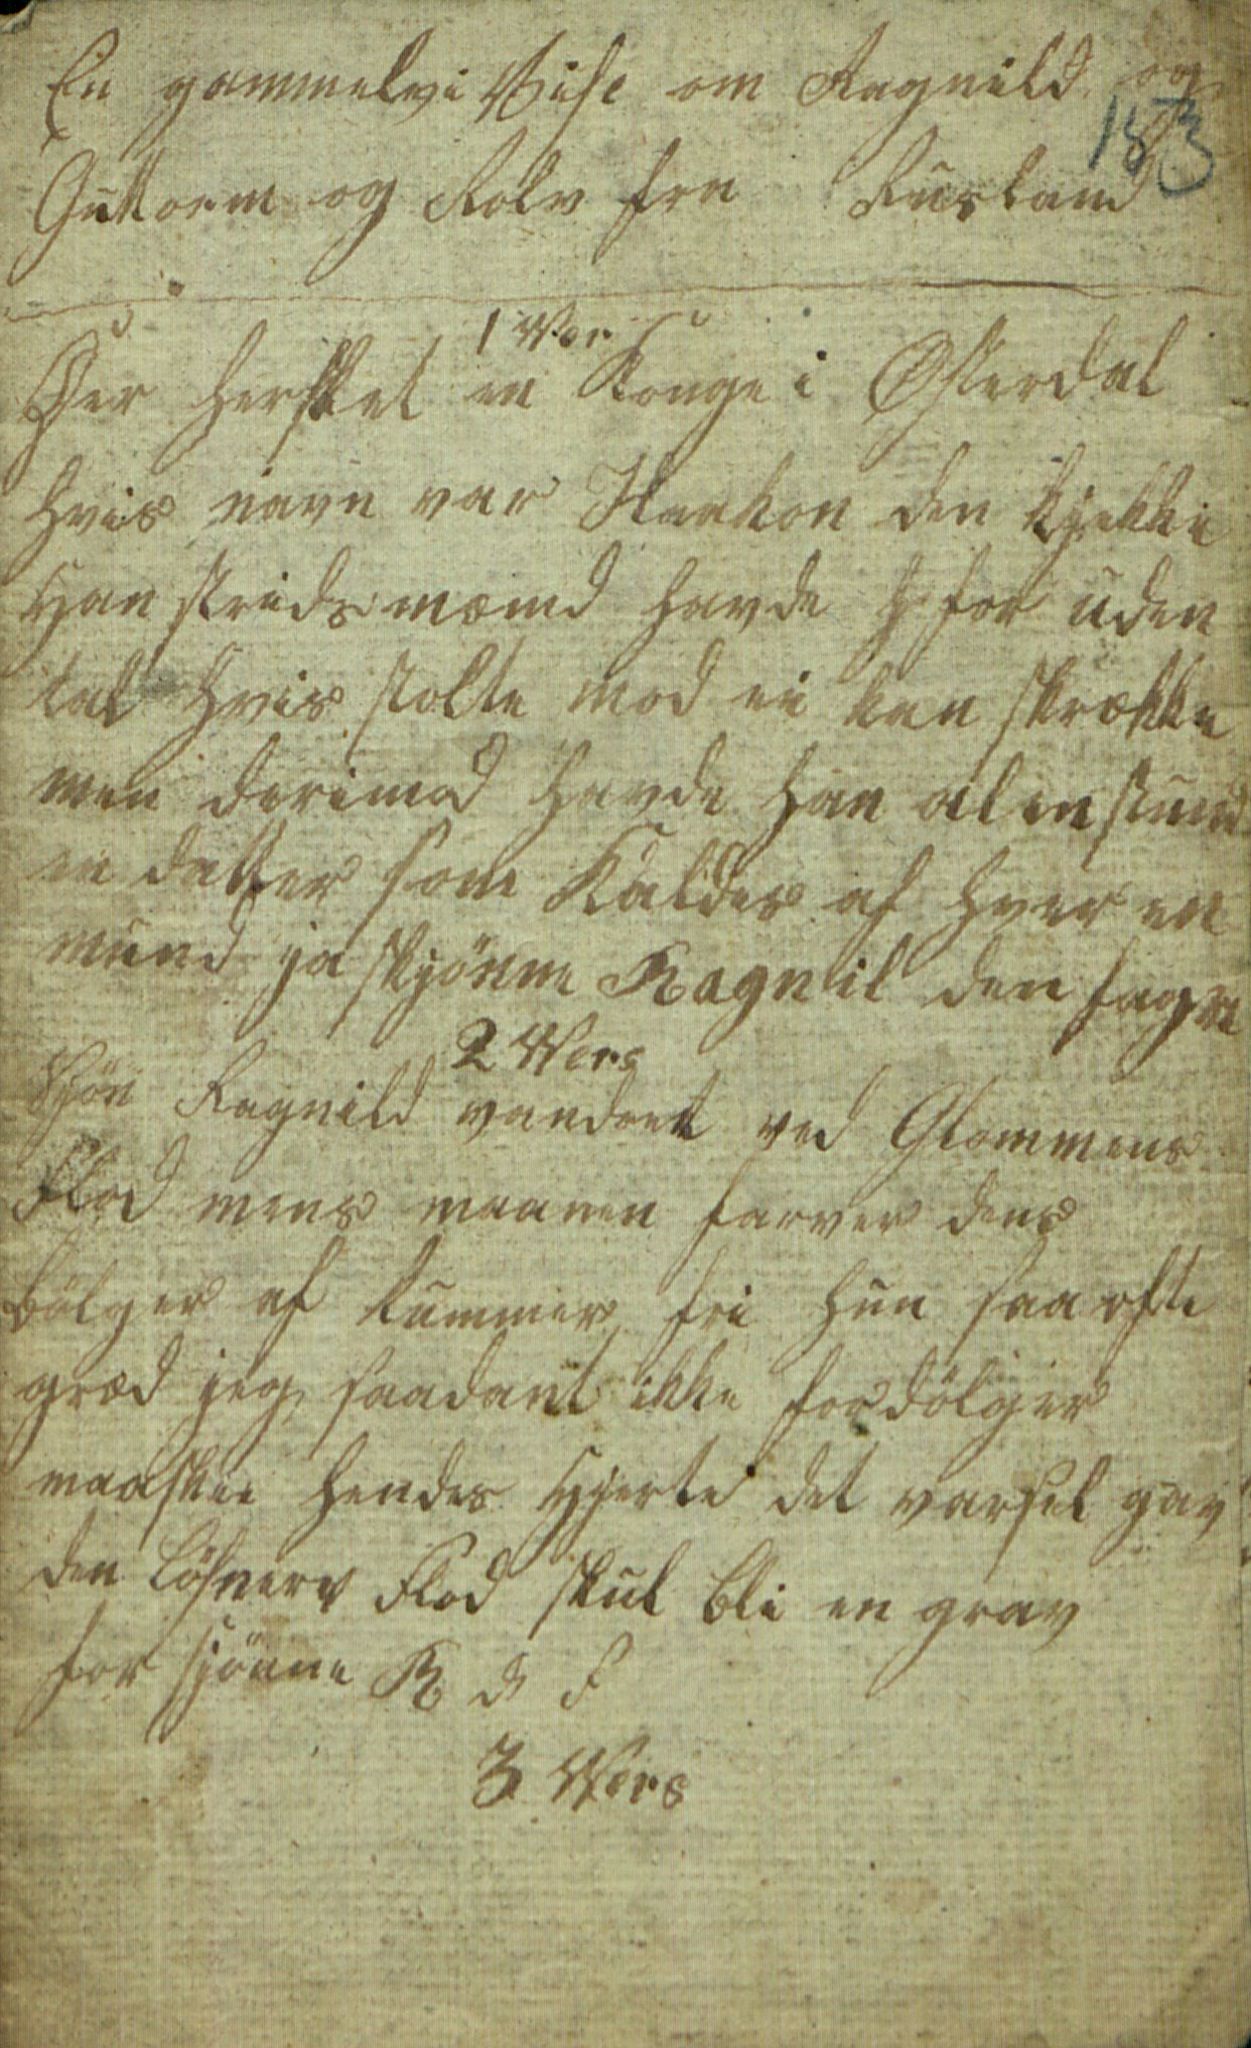 En gammelvi Viise om Ragnild og
183
Guttorm og Rolv fra Rusland
1 Ver
Der hersket en Konge i Østerdal
hvis navn var Haakon den kjekke
Han stridsmænd havde for uden
tal hvis stolte mod ei kan skrække
men derimod havde han alenstund
en datter som Kaldes af hver en
mund ja skjönne Ragnil den fagre
2 Vers
Sjön Ragnild vandret ved Glommens
Flod mens maanen farver dens
bölger af kummer fri hun saa ofte
græd jeg saadant ikke fordölger
maaskee hendes Hjerte det varsel gav
den Löfnere Flod skul bli en grav
for sjönne R d F
3 Vers